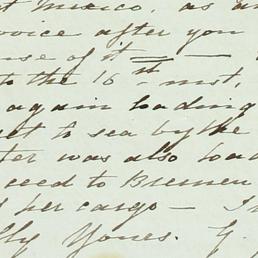 t Mexico, as an
voice after you
use of it —
to the 16th inst,
again loading
get to sea by the
ter was also load
ceed to Bremen
s her cargo —
lly Yours. G.